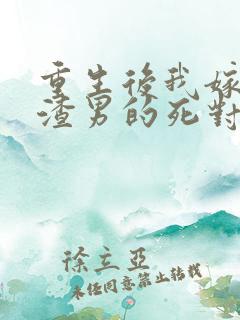 重生後我嫁
渣男的死對
徐立亞
未经同意禁止转载